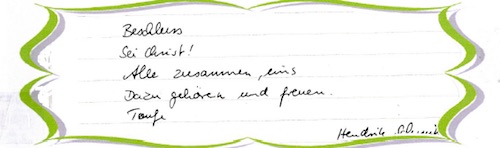 Beschluss
Sei Christ!
Alle zusammen, eins
Dazu gehören und freuen.
Taufe
Hendrik